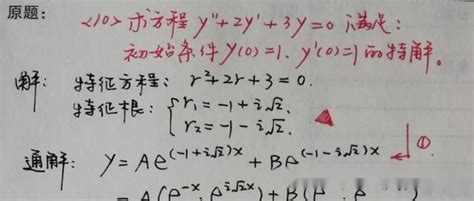 原题:
<10> 求方程 y''+2y'+3y=0 满足:
初始条件 y(0)=1、y'(0)=1 的特解。
解: 特征方程: r²+2r+3=0.
特征根: { r₁=-1+i√2.
r₂=-1-i√2.
通解: y=Ae^{(-1+i√2)x} + Be^{(-1-i√2)x} ①
=A(e^{-x}. e^{i√2x})+B(